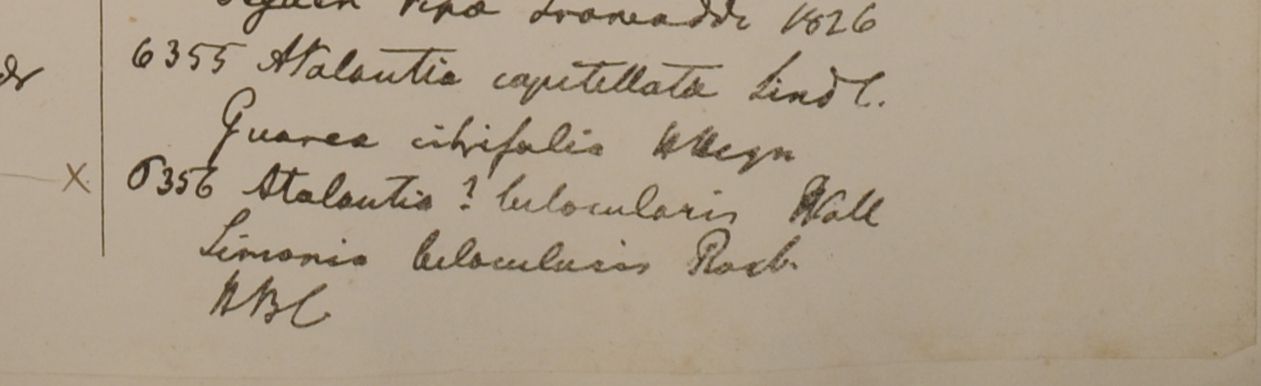 Segaen Ripa Irawaddi 1826
6355 Atalantia capitellata Lindl.
Guarea citrifolia
6356 Atalantia ? bilocularis Wall
Limonia bilocularis Roxb.
HBC